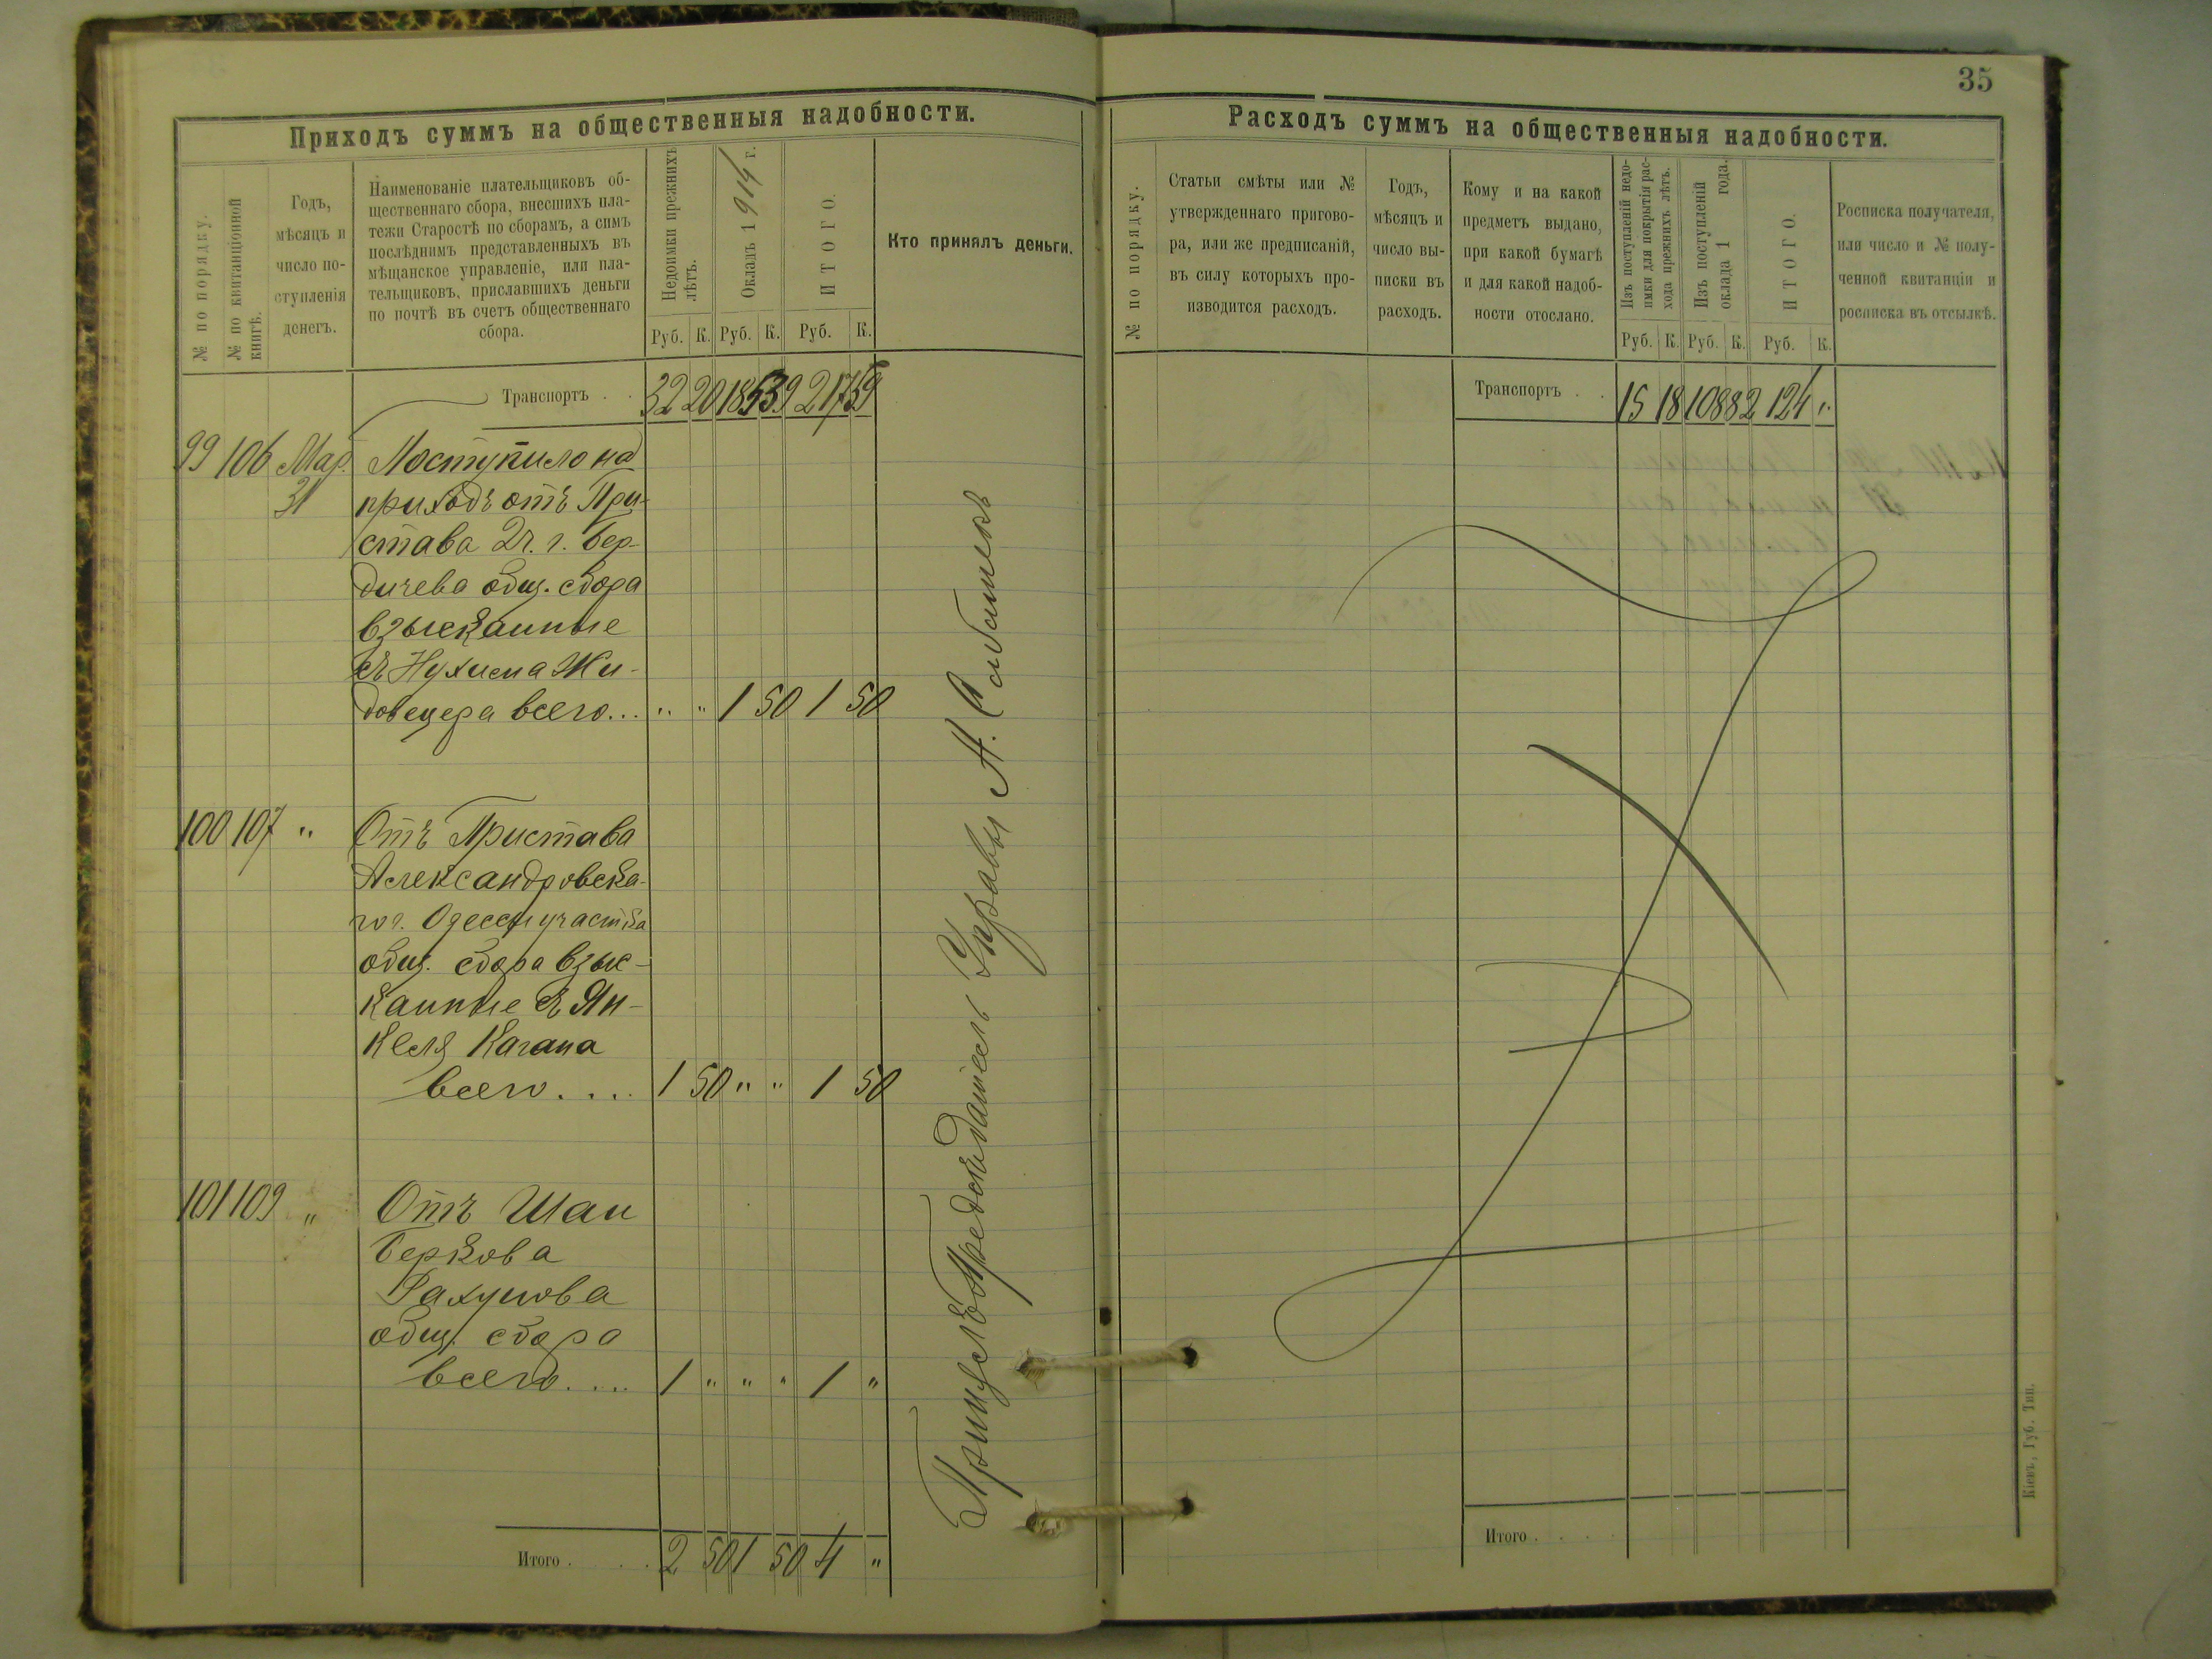 35
Приходъ суммъ на общественныя надобности.
№ по порядку.
№ по квитанціонной
книгѣ.
Годъ,
мѣсяцъ и
число по-
ступленія
денегъ.
Наименованіе плательщиковъ об-
щественнаго сбора, внесшихъ пла-
тежи Старостѣ по сборамъ, а симъ
послѣднимъ представленныхъ въ
мѣщанское управленіе, или пла-
тельщиковъ, приславшихъ деньги
по почтѣ въ счетъ общественнаго
сбора.
Недоимки прежнихъ
лѣтъ.
Окладъ 1914 г.
ИТОГО.
Кто принялъ деньги.
Руб. К. Руб. К. Руб. К.
Транспортъ . . 32 20 185 39 217 59
99 106 Мар. Поступило на
31 приходъ отъ При-
става 2ч. г. Бер-
дичева общ. сбора
взысканные
съ Нухима Жи-
довецера всего... " " 1 50 1 50
100 107 " Отъ Пристава
Александровска-
го г. Одессы участка
общ. сбора взыс-
канные съ Ян-
келя Кагана
всего .... 1 50 " " 1 50
101 109 " Отъ Шаи
Беркова
общ. сбора
всего .... 1 " " " 1 "
Итого . . . 2 50 1 50 4 "
Предсѣдатель Управы А.
Расходъ суммъ на общественныя надобности.
№ по порядку.
Статьи смѣты или №
утвержденнаго пригово-
ра, или же предписаній,
въ силу которыхъ про-
изводится расходъ.
Годъ,
мѣсяцъ и
число вы-
писки въ
расходъ.
Кому и на какой
предметъ выдано,
при какой бумагѣ
и для какой надоб-
ности отослано.
Изъ поступленій недо-
имки для покрытія рас-
хода прежнихъ лѣтъ.
Изъ поступленій
оклада 1 года.
ИТОГО.
Росписка получателя,
или число и № полу-
ченной квитанціи и
росписка въ отсылкѣ.
Руб. К. Руб. К. Руб. К.
Транспортъ . . 15 18 108 82 124 "
Итого . . . .
Кіевъ, Губ. Тип.